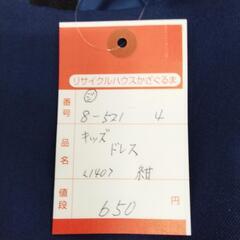 リサイクルハウスかざぐるま
番号 8-521 4
品名 キッズ
ドレス
<140> 紺
値段 650 円